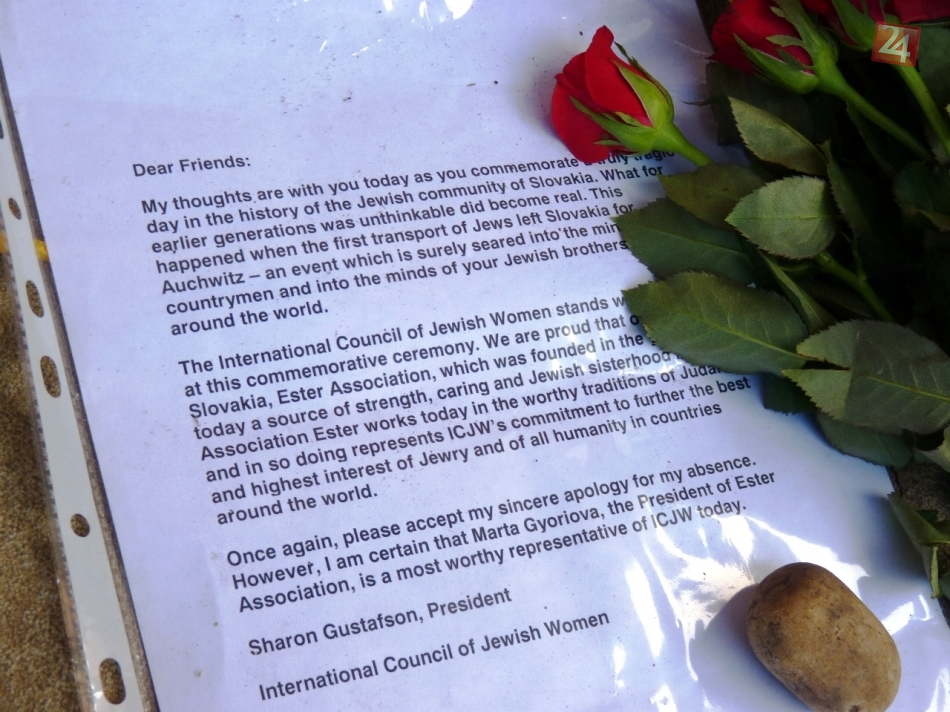 24
Dear Friends:
My thoughts are with you today as you commemorate a truly tragic
day in the history of the Jewish community of Slovakia. What for
earlier generations was unthinkable did become real. This
happened when the first transport of Jews left Slovakia for
Auchwitz – an event which is surely seared into the
countrymen and into the minds of your Jewish brothers
around the world.
The International Council of Jewish Women stands
at this commemorative ceremony. We are proud that
Slovakia, Ester Association, which was founded in the
today a source of strength, caring and Jewish sisterhood
Association Ester works today in the worthy traditions of
and in so doing represents ICJW's commitment to further the best
and highest interest of Jewry and of all humanity in countries
around the world.
Once again, please accept my sincere apology for my absence.
However, I am certain that Marta Gyoriova, the President of Ester
Association, is a most worthy representative of ICJW today.
Sharon Gustafson, President
International Council of Jewish Women